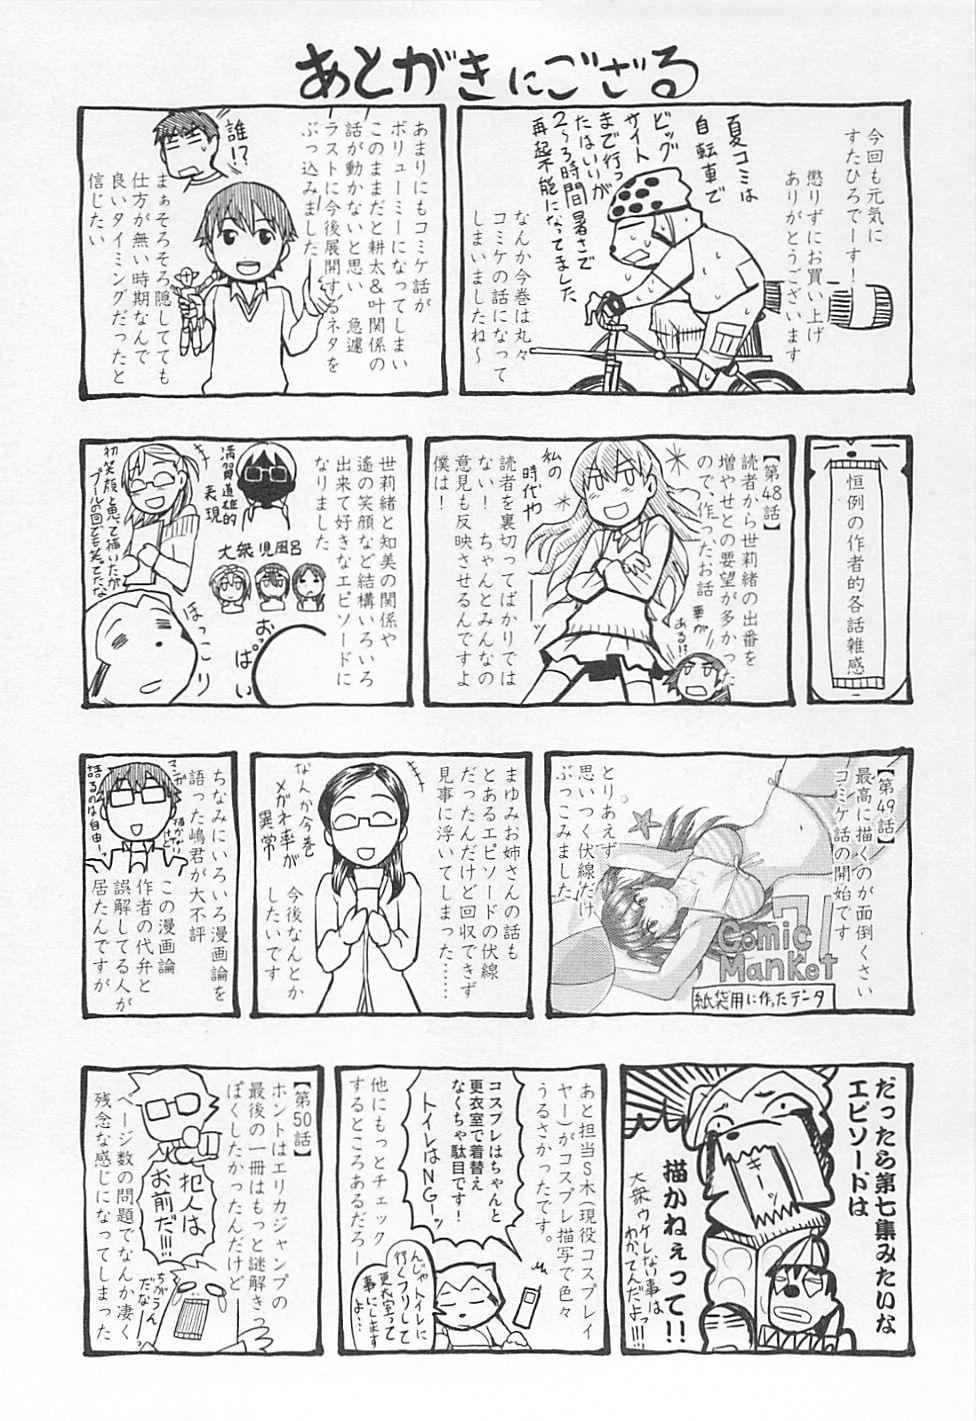 あとがきにござる
今回も元気に
すたひろでーす!
懲りずにお買い上げ
ありがとうございます
夏コミは
自転車で
ビッグ
サイト
まで行っ
たはいいが
2~3時間暑さで
再起不能になってました
なんか今巻は丸々
コミケの話になって
しまいましたね~
あまりにもコミケ話が
ボリューミーになってしまい
このままだと耕太&叶関係の
話が動かないと思い 急遽
ラストに今後展開するネタを
ぶっ込みました
誰!?
まぁそろそろ隠してても
仕方が無い時期なんで
良いタイミングだったと
信じたい
恒例の作者的各話雑感
【第48話】
読者から世莉緒の出番を
増やせとの要望が多かった
ので、作ったお話
私の
時代や
華が
ある!?
読者を裏切ってばかりでは
ない! ちゃんとみんなの
意見も反映させるんですよ
僕は!
世莉緒と知美の関係や
遙の笑顔など結構いろいろ
出来て好きなエピソードに
なりました
満賀道雄的
表現
大衆児風呂
初笑顔と思って描いたが
プールの回でも笑ってたな
おっぱい
ほっこり
【第49話】
最高に描くのが面倒くさい
コミケ話の開始です
とりあえず
思いつく伏線だけ
ぶっこみました
Comic
Market
71
紙袋用に作ったデータ
まゆみお姉さんの話も
とあるエピソードの伏線
だったんだけど回収できず
見事に浮いてしまった……
なんか今巻
メガネ率が
異常
今後なんとか
したいです
ちなみにいろいろ漫画論を
語った嶋君が大不評
マンガ
描かない
けど
語るのは自由ーっ
この漫画論
作者の代弁と
誤解してる人が
居たんですが
だったら第七集みたいな
エピソードは
描かねぇって!!
キーッ
大衆ウケしない事は
わかってんだよっ!!!
あと担当S木(現役コスプレイ
ヤー)がコスプレ描写で色々
うるさかったです。
コスプレはちゃんと
更衣室で着替え
なくちゃ駄目です!
トイレはNGーッ
他にもっとチェック
するところあるだろー
んじゃトイレに
行くフリして
更衣室って
事にします
よ…
【第50話】
ホントはエリカジャンプの
最後の一冊はもっと謎解きっ
ぽくしたかったんだけど
犯人は
お前だ!!!
ちがうん
だなーっ
ページ数の問題でなんか凄く
残念な感じになってしまった